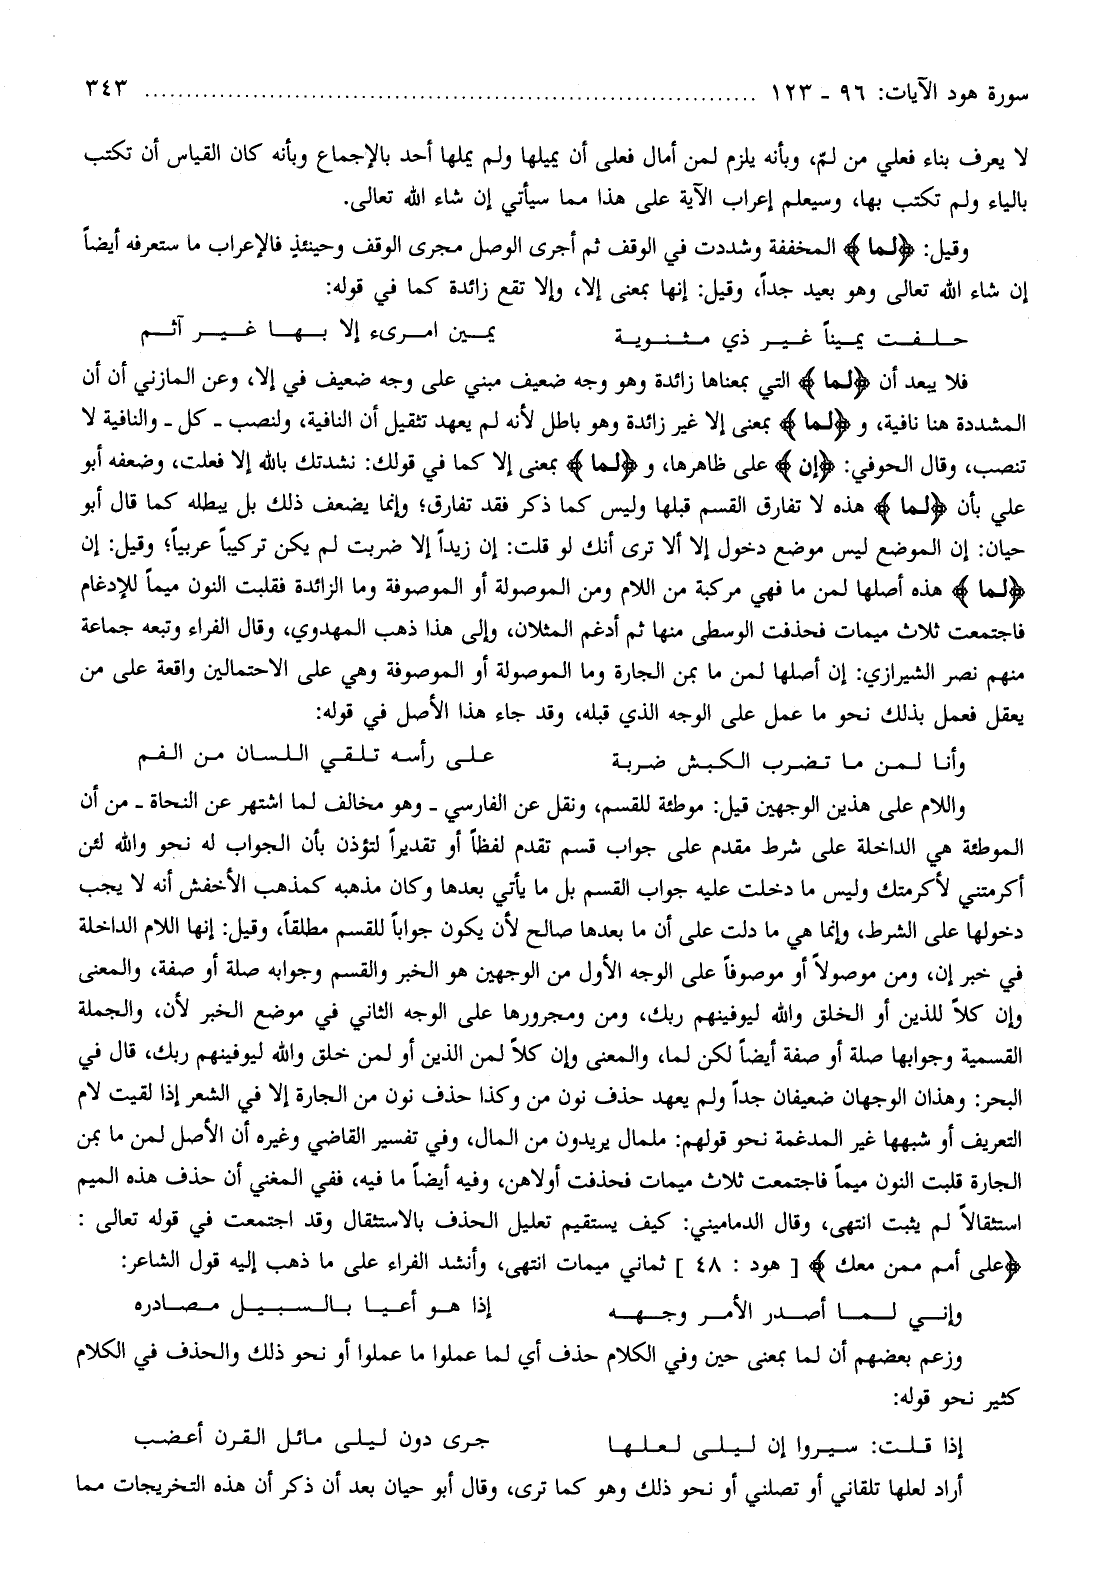 سورة هود الآيات: ٩٦ ـ ١٢٣ ........................................................................ ٣٤٣
لا يعرف بناء فعلي من لمّ، وبأنه يلزم لمن أمال فعلى أن يميلها ولم يملها أحد بالإجماع وبأنه كان القياس أن تكتب
بالياء ولم تكتب بها، وسيعلم إعراب الآية على هذا مما سيأتي إن شاء الله تعالى.
وقيل: ﴿لما﴾ المخففة وشددت في الوقف ثم أجرى الوصل مجرى الوقف وحينئذٍ فالإعراب ما ستعرفه أيضاً
إن شاء الله تعالى وهو بعيد جداً، وقيل: إنها بمعنى إلا، وإلا تقع زائدة كما في قوله:
حلفت يميناً غير ذي مثنوية يمين امرىء إلا بها غير آثم
فلا يبعد أن ﴿لما﴾ التي بمعناها زائدة وهو وجه ضعيف مبني على وجه ضعيف في إلا، وعن المازني أن أن
المشددة هنا نافية، و ﴿لما﴾ بمعنى إلا غير زائدة وهو باطل لأنه لم يعهد تثقيل أن النافية، ولنصب ـ كل ـ والنافية لا
تنصب، وقال الحوفي: ﴿إن﴾ على ظاهرها، و ﴿لما﴾ بمعنى إلا كما في قولك: نشدتك بالله إلا فعلت، وضعفه أبو
علي بأن ﴿لما﴾ هذه لا تفارق القسم قبلها وليس كما ذكر فقد تفارق؛ وإنما يضعف ذلك بل يبطله كما قال أبو
حيان: إن الموضع ليس موضع دخول إلا ألا ترى أنك لو قلت: إن زيداً إلا ضربت لم يكن تركيباً عربياً؛ وقيل: إن
﴿لما﴾ هذه أصلها لمن ما فهي مركبة من اللام ومن الموصولة أو الموصوفة وما الزائدة فقلبت النون ميماً للإدغام
فاجتمعت ثلاث ميمات فحذفت الوسطى منها ثم أدغم المثلان، وإلى هذا ذهب المهدوي، وقال الفراء وتبعه جماعة
منهم نصر الشيرازي: إن أصلها لمن ما بمن الجارة وما الموصولة أو الموصوفة وهي على الاحتمالين واقعة على من
يعقل فعمل بذلك نحو ما عمل على الوجه الذي قبله، وقد جاء هذا الأصل في قوله:
وأنا لمن ما تضرب الكبش ضربة على رأسه تلقي اللسان من الفم
واللام على هذين الوجهين قيل: موطئة للقسم، ونقل عن الفارسي ـ وهو مخالف لما اشتهر عن النحاة ـ من أن
الموطئة هي الداخلة على شرط مقدم على جواب قسم تقدم لفظاً أو تقديراً لتؤذن بأن الجواب له نحو والله لئن
أكرمتني لأكرمتك وليس ما دخلت عليه جواب القسم بل ما يأتي بعدها وكان مذهبه كمذهب الأخفش أنه لا يجب
دخولها على الشرط، وإنما هي ما دلت على أن ما بعدها صالح لأن يكون جواباً للقسم مطلقاً، وقيل: إنها اللام الداخلة
في خبر إن، ومن موصولاً أو موصوفاً على الوجه الأول من الوجهين هو الخبر والقسم وجوابه صلة أو صفة، والمعنى
وإن كلاً للذين أو الخلق والله ليوفينهم ربك، ومن ومجرورها على الوجه الثاني في موضع الخبر لأن، والجملة
القسمية وجوابها صلة أو صفة أيضاً لكن لما، والمعنى وإن كلاً لمن الذين أو لمن خلق والله ليوفينهم ربك، قال في
البحر: وهذان الوجهان ضعيفان جداً ولم يعهد حذف نون من وكذا حذف نون من الجارة إلا في الشعر إذا لقيت لام
التعريف أو شبهها غير المدغمة نحو قولهم: ملمال يريدون من المال، وفي تفسير القاضي وغيره أن الأصل لمن ما بمن
الجارة قلبت النون ميماً فاجتمعت ثلاث ميمات فحذفت أولاهن، وفيه أيضاً ما فيه، ففي المغني أن حذف هذه الميم
استثقالاً لم يثبت انتهى، وقال الدماميني: كيف يستقيم تعليل الحذف بالاستثقال وقد اجتمعت في قوله تعالى :
﴿على أمم ممن معك﴾ [ هود : ٤٨ ] ثماني ميمات انتهى، وأنشد الفراء على ما ذهب إليه قول الشاعر:
وإني لما أصدر الأمر وجهه إذا هو أعيا بالسبيل مصادره
وزعم بعضهم أن لما بمعنى حين وفي الكلام حذف أي لما عملوا ما عملوا أو نحو ذلك والحذف في الكلام
كثير نحو قوله:
إذا قلت: سيروا إن ليلى لعلها جرى دون ليلى مائل القرن أعضب
أراد لعلها تلقاني أو تصلني أو نحو ذلك وهو كما ترى، وقال أبو حيان بعد أن ذكر أن هذه التخريجات مما